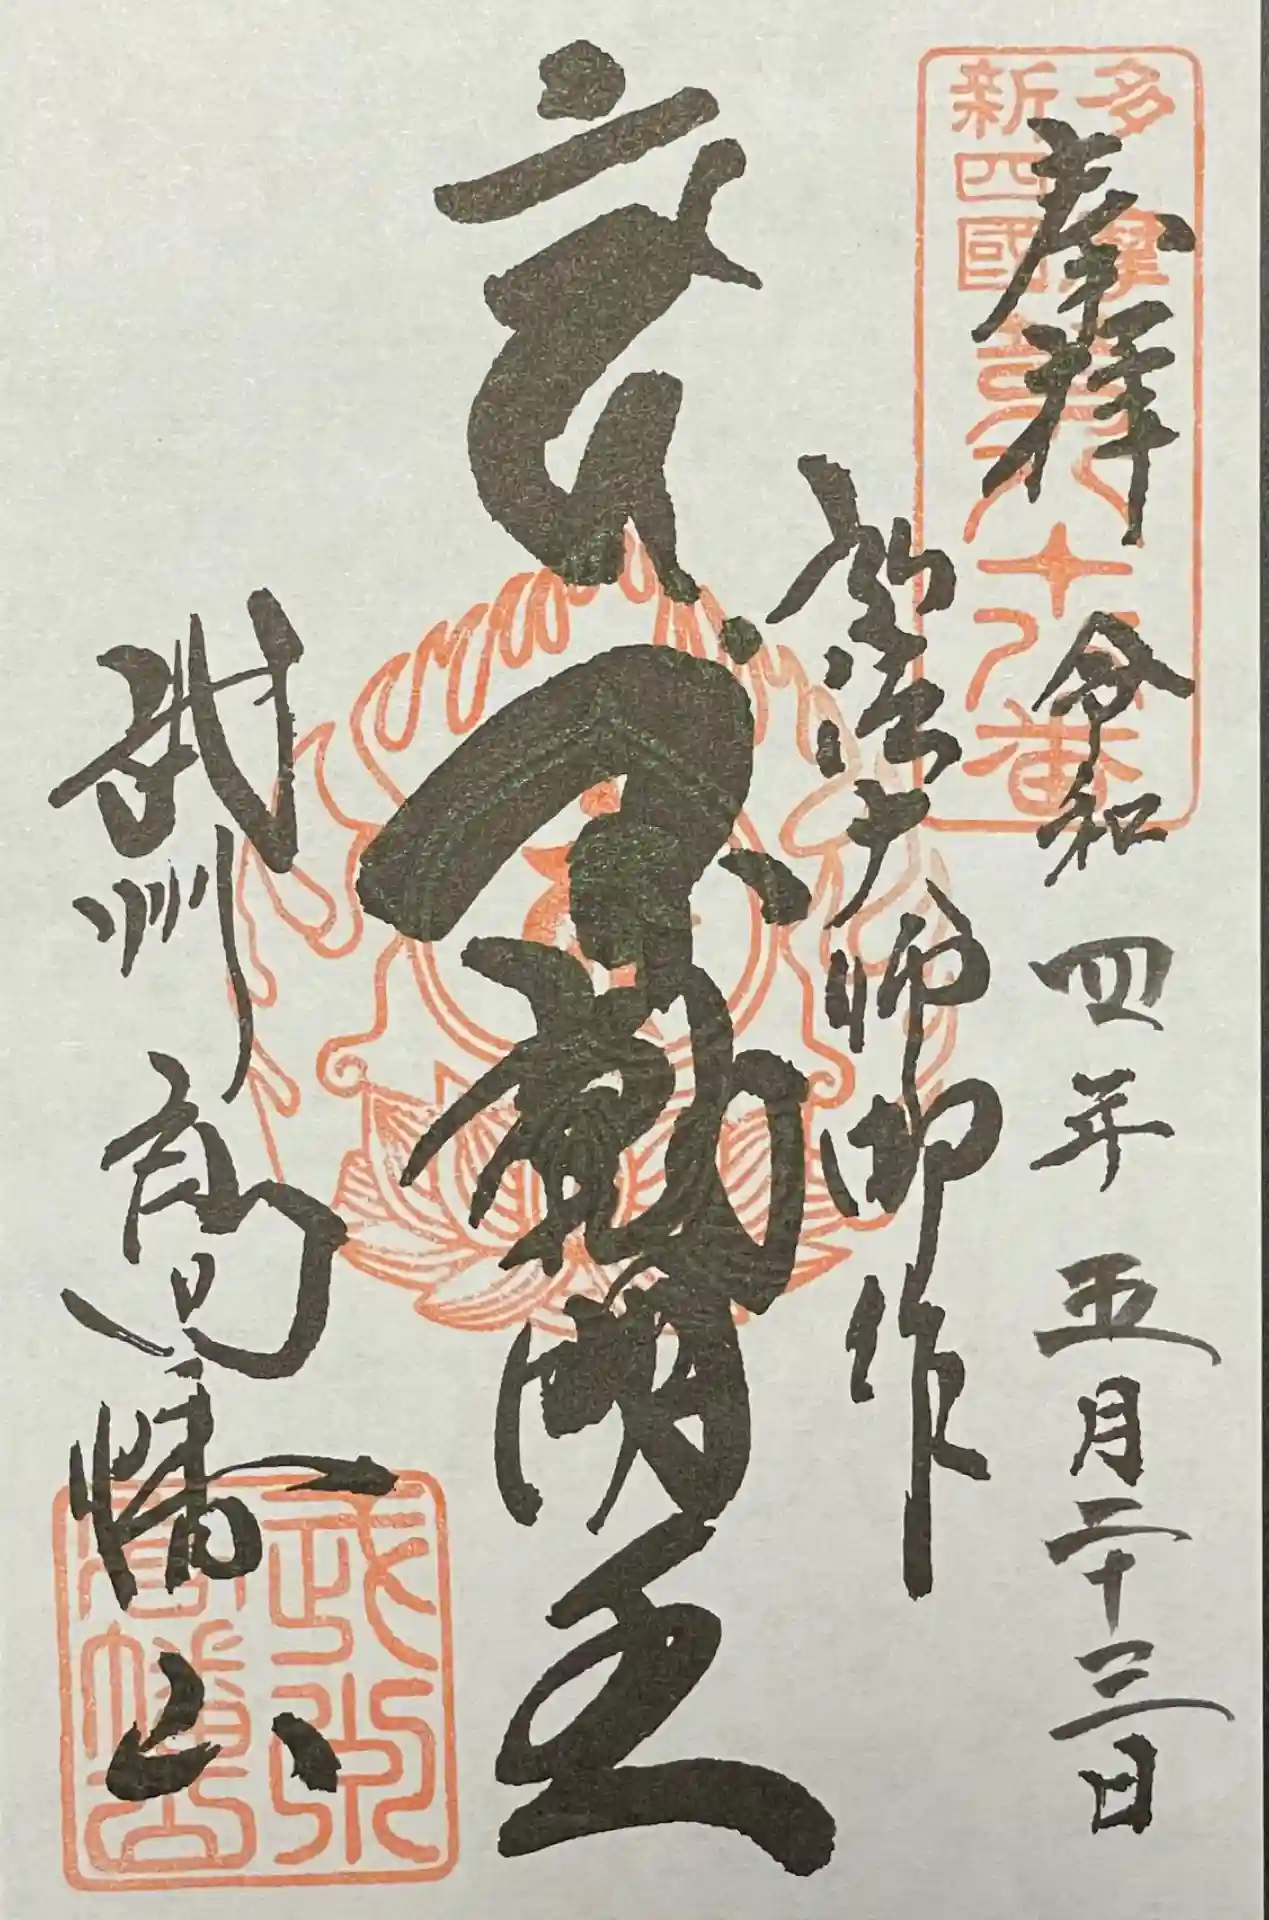 多摩
新四國
第八十八番
奉拝 令和四年五月二十三日
弘法大師御作
不動明王
武州 高幡山
武州
高幡山